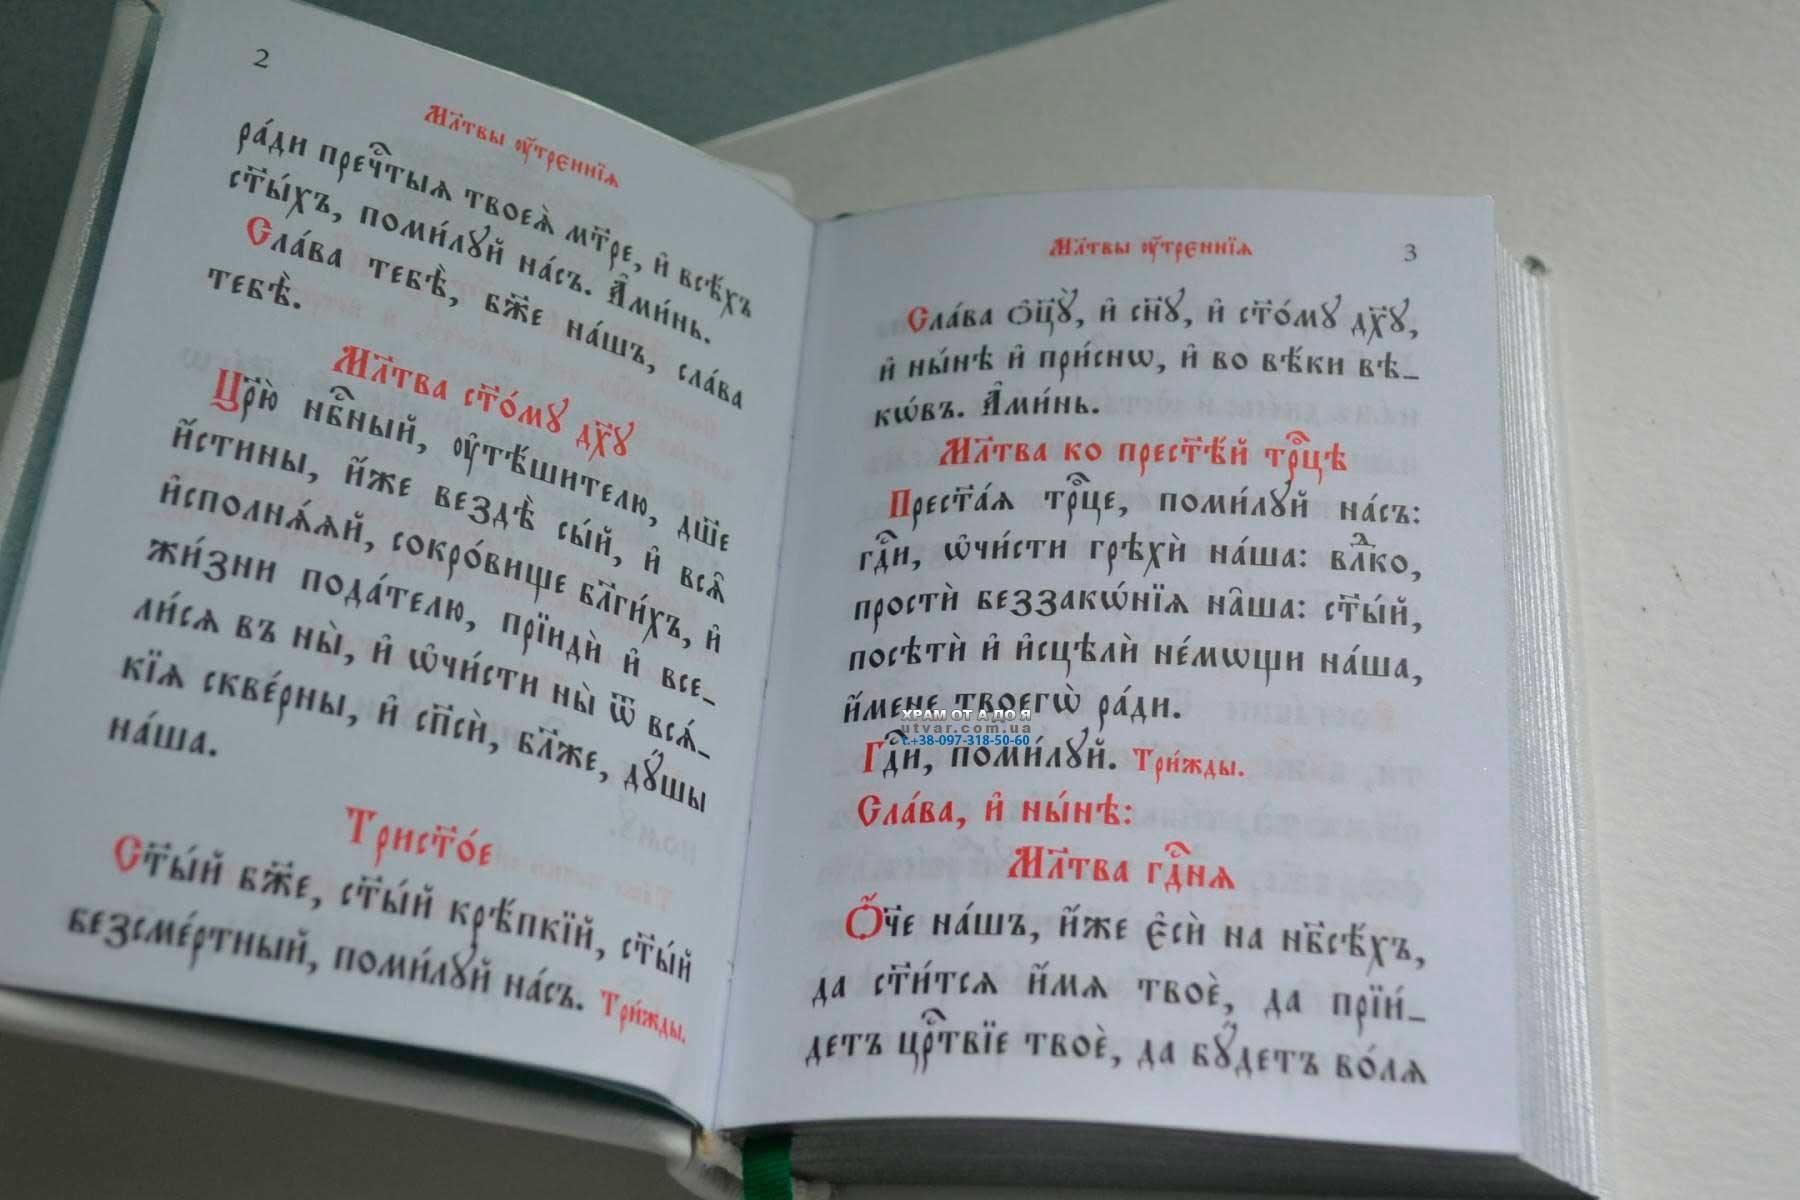 2
Мл҃твы ᲂу҆́трєннїѧ
ра́ди пречⷭ҇тыѧ твоеѧ̀ мт҃ре, и҆ всѣ́хъ
ст҃ы́хъ, поми́лꙋй на́съ. А҆ми́нь.
Сла́ва тебѣ̀, бж҃е на́шъ, сла́ва
тебѣ̀.
Мл҃тва ст҃о́мꙋ дх҃ꙋ
Цр҃ю̀ нбⷭ҇ный, ᲂу҆тѣ́шителю, дш҃е
и҆́стины, и҆́же вездѣ̀ сы́й, и҆ всѧ̑
и҆сполнѧ́ѧй, сокро́вище бл҃ги́хъ, и҆
жи́зни пода́телю, прїидѝ и҆ все-
ли́сѧ въ ны̀, и҆ ѡ҆чи́сти ны̀ ѿ всѧ́-
кїѧ скве́рны, и҆ сп҃сѝ, бл҃же, дꙋ́шы
на́ша.
Трист҃о́е
Ст҃ы́й бж҃е, ст҃ы́й крѣ́пкїй, ст҃ы́й
безсме́ртный, поми́лꙋй на́съ. Три́жды.
Мл҃твы ᲂу҆́трєннїѧ
3
Сла́ва ѻ҆ц҃ꙋ̀, и҆ сн҃ꙋ, и҆ ст҃о́мꙋ дх҃ꙋ,
и҆ ны́нѣ и҆ при́снѡ, и҆ во вѣ́ки вѣ-
кѡ́въ. А҆ми́нь.
Мл҃тва ко прест҃ѣ́й трⷪ҇цѣ
Прест҃а́ѧ трⷪ҇це, поми́лꙋй на́съ:
гдⷭ҇и, ѡ҆чи́сти грѣхѝ на́ша: влⷣко,
простѝ беззакѡ́нїѧ на̑ша: ст҃ы́й,
посѣтѝ и҆ и҆сцѣлѝ не́мѡщи на́ша,
и҆́мене твоегѡ̀ ра́ди.
ХРАМ ОТ А ДО Я
utvar.com.ua
т.+38-097-318-50-60
Гдⷭ҇и, поми́лꙋй. Три́жды.
Сла́ва, и҆ ны́нѣ:
Мл҃тва гдⷭ҇нѧ
Ѻ҆́ч҃е на́шъ, и҆́же є҆сѝ на нб҃сѣ́хъ,
да ст҃и́тсѧ и҆́мѧ твоѐ, да прїи́-
детъ црⷭ҇твїе твоѐ, да бꙋ́детъ во́лѧ